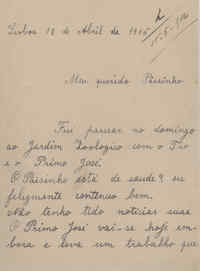 Lisboa 18 de Abril de 1915
Meu querido Paisinho
Fui passear no domingo
ao Jardim Zoologico com o Tio
e o Primo José.
O Paisinho está de saude? eu
felizmente contenuo bem.
não tenho tido noticias suas
O Primo José vai-se hoje em-
bora e leva um trabalho que